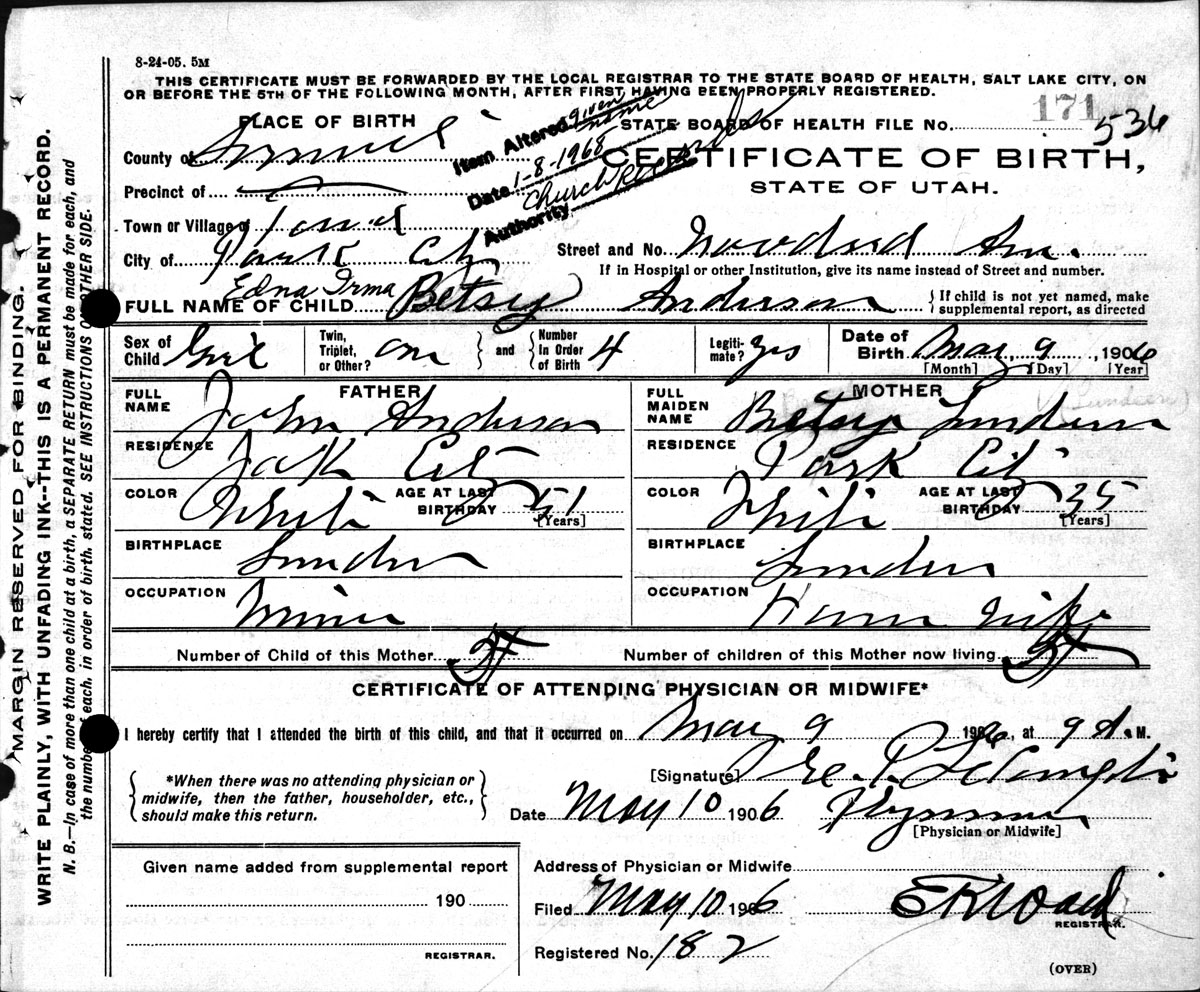 8-24-05. 5M
THIS CERTIFICATE MUST BE FORWARDED BY THE LOCAL REGISTRAR TO THE STATE BOARD OF HEALTH, SALT LAKE CITY, ON
OR BEFORE THE 5TH OF THE FOLLOWING MONTH, AFTER FIRST HAVING BEEN PROPERLY REGISTERED.
PLACE OF BIRTH
Item Altered given name
Date 1-8-1968
Authority Church Records
STATE BOARD OF HEALTH FILE No. 171 536
County of Summit
CERTIFICATE OF BIRTH,
STATE OF UTAH.
Precinct of
Town or Village of
City of Park City
Street and No. Woodside Ave.
If in Hospital or other Institution, give its name instead of Street and number.
Edna Irma
FULL NAME OF CHILD Betsey Anderson
{If child is not yet named, make supplemental report, as directed
Sex of Child Girl
Twin, Triplet, or Other? one
and Number In Order of Birth 4
Legiti-mate? yes
Date of Birth May 9, 1906
[Month] [Day] [Year]
FATHER
FULL NAME John Anderson
RESIDENCE Park City
COLOR White
AGE AT LAST BIRTHDAY 51
[Years]
BIRTHPLACE Sweden
OCCUPATION Miner
MOTHER
FULL MAIDEN NAME Betsey
RESIDENCE Park City
COLOR White
AGE AT LAST BIRTHDAY 35
[Years]
BIRTHPLACE Sweden
OCCUPATION House Wife
Number of Child of this Mother
Number of children of this Mother now living
CERTIFICATE OF ATTENDING PHYSICIAN OR MIDWIFE*
I hereby certify that I attended the birth of this child, and that it occurred on May 9 1906, at 9 A. M.
*When there was no attending physician or
midwife, then the father, householder, etc.,
should make this return.
[Signature]
Date May 10 1906
[Physician or Midwife]
Given name added from supplemental report
190
REGISTRAR.
Address of Physician or Midwife
Filed May 10 1906
REGISTRAR.
Registered No. 182
(OVER)
MARGIN RESERVED FOR BINDING.
WRITE PLAINLY, WITH UNFADING INK--THIS IS A PERMANENT RECORD.
N. B.--In case of more than one child at a birth, a SEPARATE RETURN must be made for each, and
the number of each, in order of birth, stated. SEE INSTRUCTIONS ON OTHER SIDE.